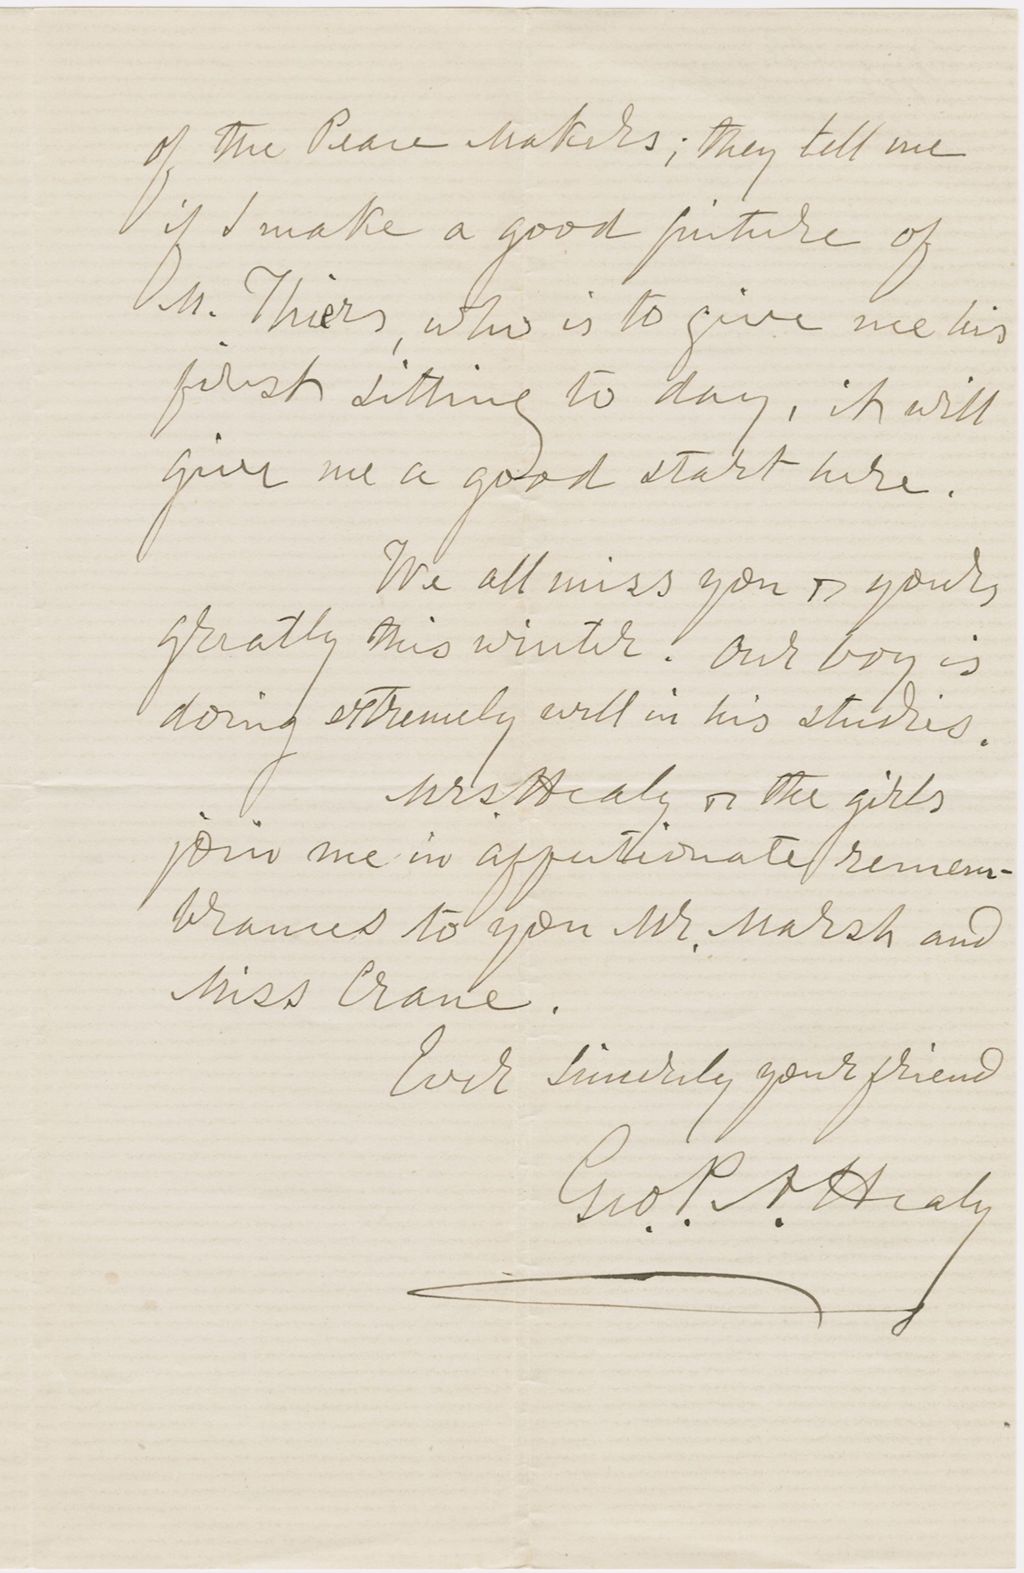 of the Peace Makers; they tell me
if I make a good picture of
M. Thiers, who is to give me his
first sitting to day, it will
give me a good start here.
We all miss you & yours
greatly this winter. Our boy is
doing extremely well in his studies.
Mrs. Healy & the girls
join me in affectionate remem-
brances to you Mr. Marsh and
Miss Crane.
Ever sincerely your friend
Geo. P. A. Healy